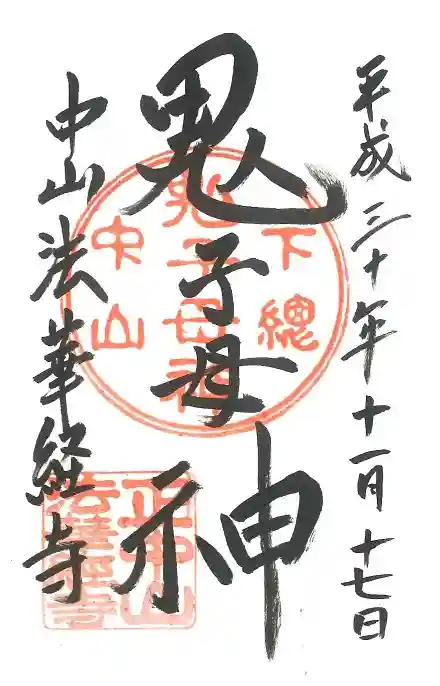 平成三十年十一月十七日
鬼子母神
中山法華経寺
下總
鬼子母神
中山
正中山
法華経寺